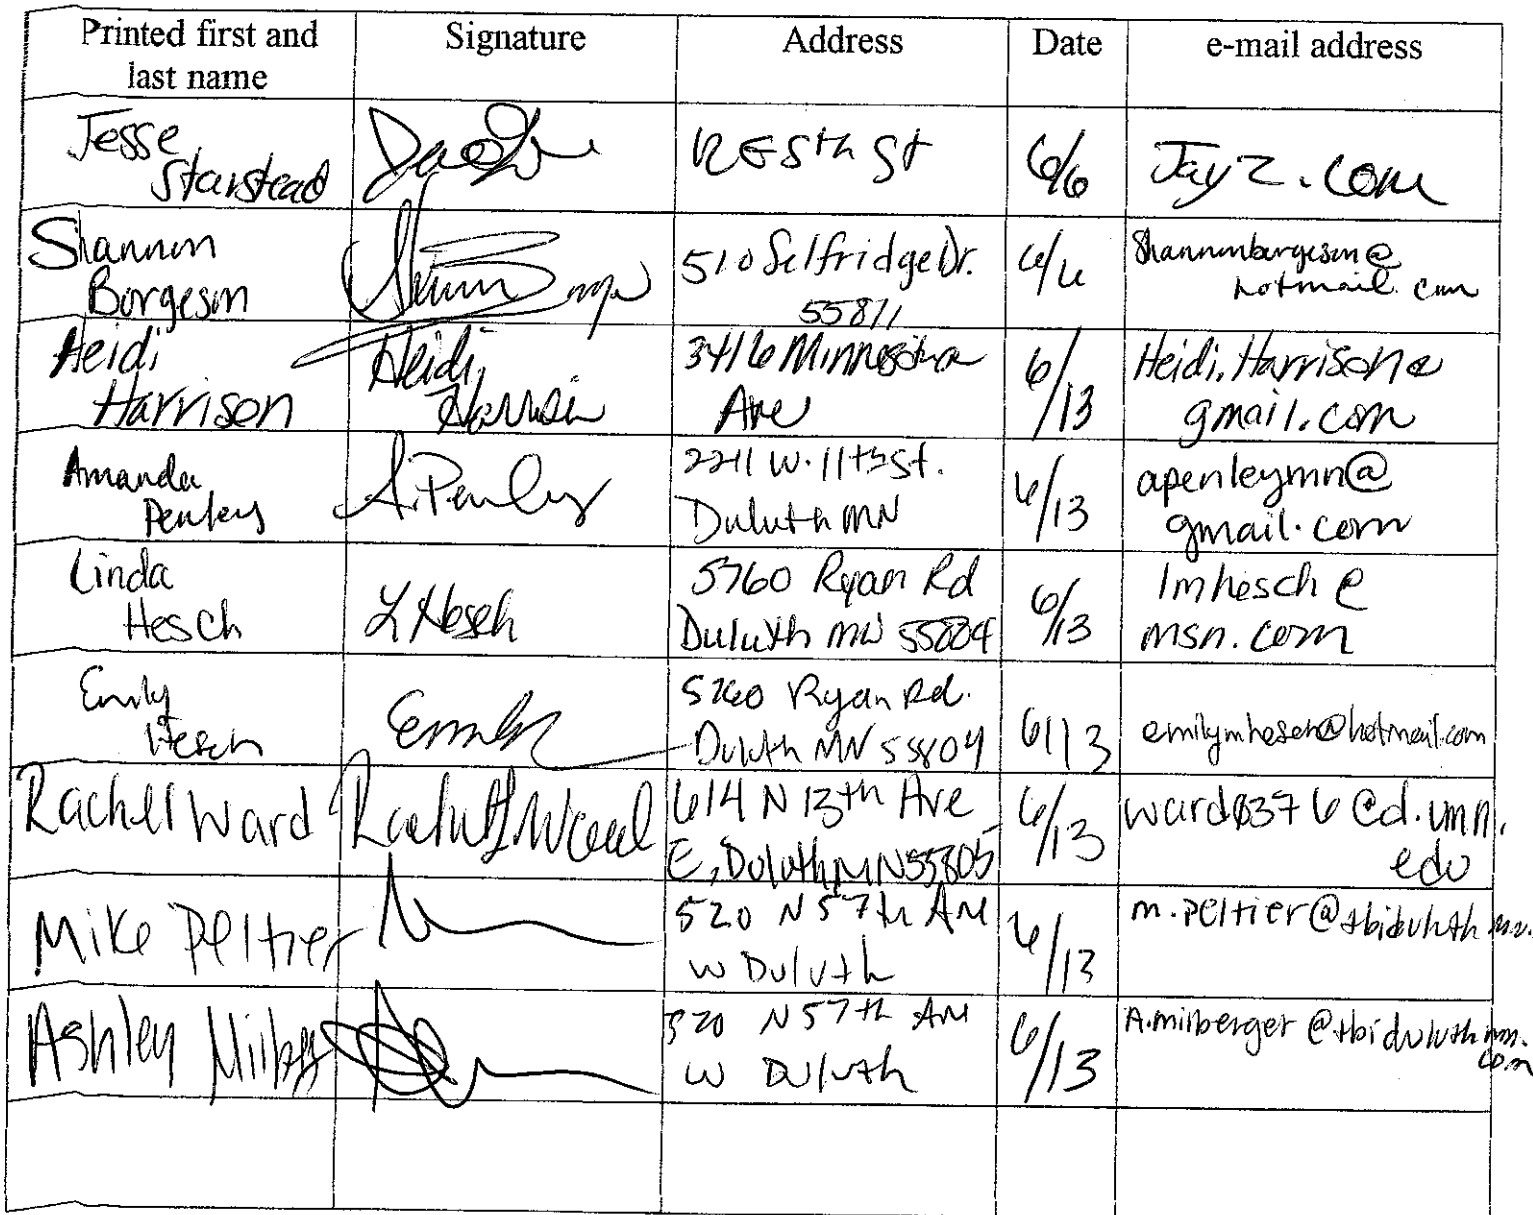 Printed first and last name Signature Address Date e-mail address
Jesse Starstead 12 E 5th St 6/6 Jayz.com
Shannon Borgeson 510 Selfridge Dr. 55811 6/6 shannonborgeson@hotmail.com
Heidi Harrison Heidi Harrison 3416 Minnesota Ave 6/13 Heidi.Harrison@gmail.com
Amanda Penley A. Penley 2211 W. 11th St. Duluth MN 6/13 apenleymn@gmail.com
Linda Hesch L Hesch 5760 Ryan Rd Duluth MN 55804 6/13 lmhesch@msn.com
Emily Hesch 5760 Ryan Rd. Duluth MN 55804 6/13 emilymhesch@hotmail.com
Rachel Ward Rachel L Ward 614 N 13th Ave E, Duluth MN 55805 6/13 ward0376@d.umn.edu
Mike Peltier 520 N 57th Ave W Duluth 6/13 m.peltier@tbiduluthmn.
Ashley 520 N 57th Ave W Duluth 6/13 A.milberger@tbiduluthmn.com